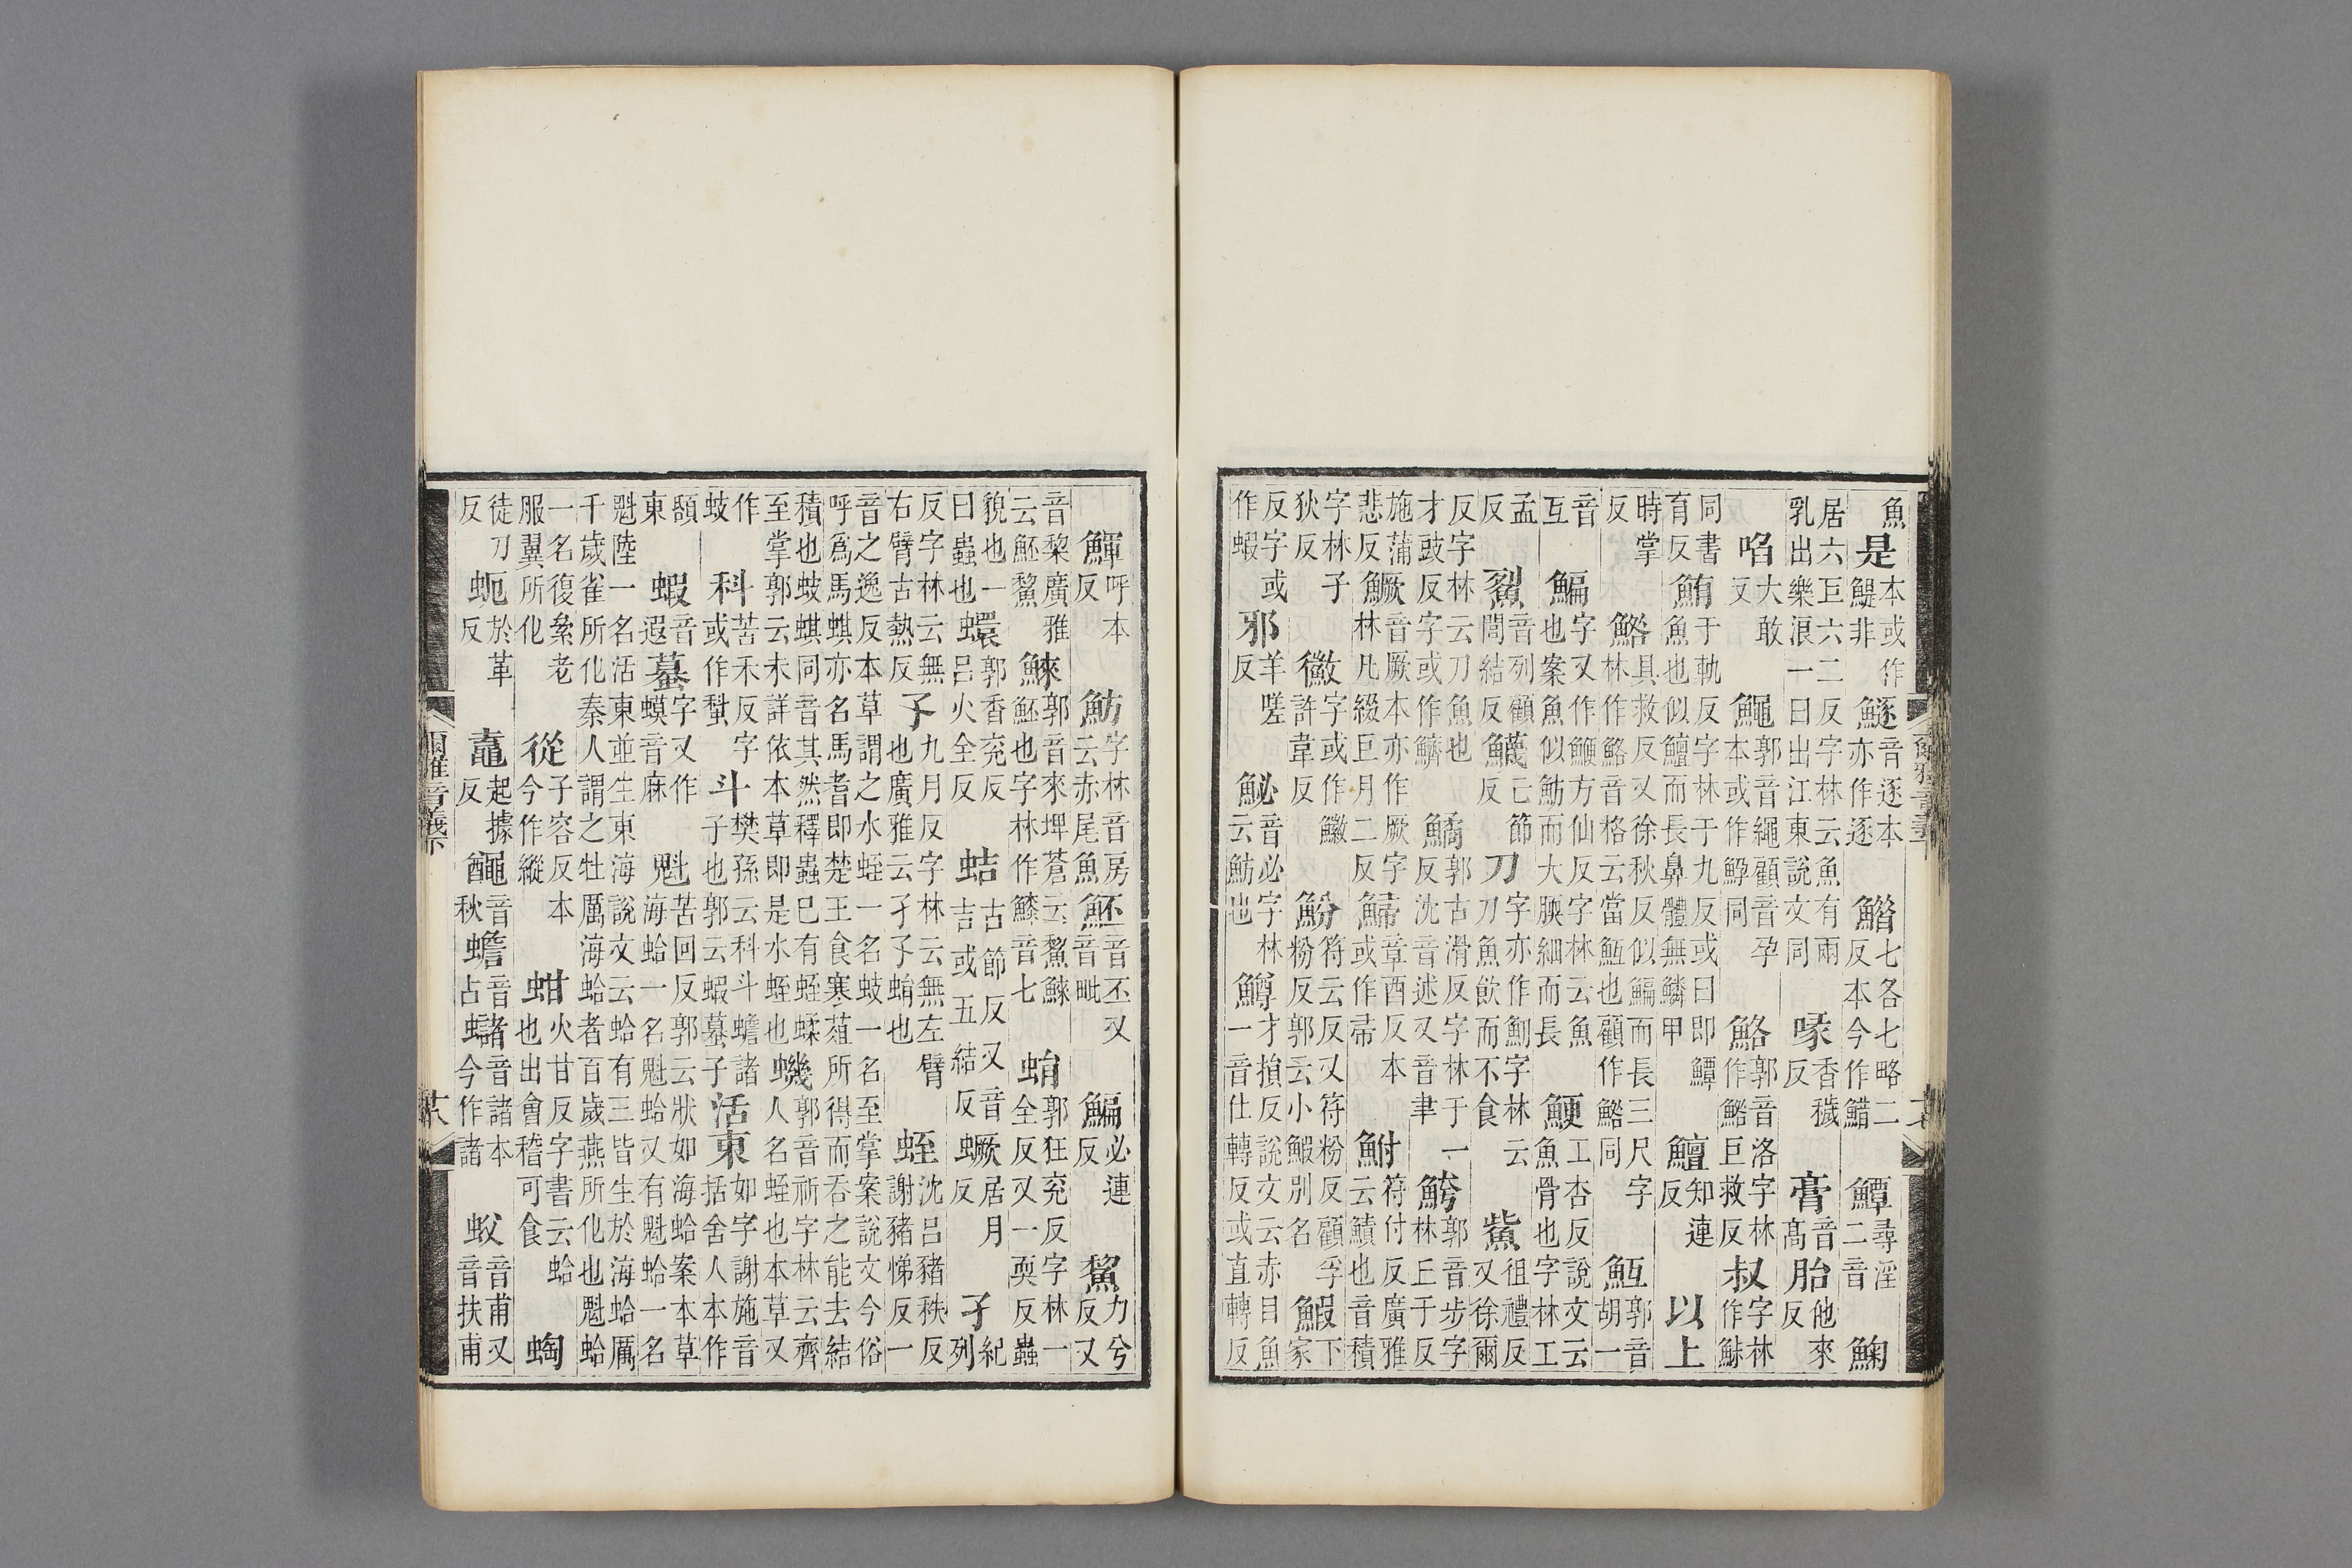 魚是本或作鯷非鱁音逐本亦作逐䱜七各七略二反本今作鯌鱏尋淫二音鮈
居六巨六二反字林云魚有兩乳出樂浪一曰出江東說文同喙香穢反膏音髙胎他來反
啗大敢反鱦郭音繩顧音孕本或作鱦同鮥郭音洛字林作鯦巨救反叔字林作鮛
同書育反鮪于軌反字林于九反或曰即鱏魚也似鱣而長鼻體無鱗甲鱣知連反以上
時掌反鯦其救反又徐秋反似鯿而長三尺字林作鮥音格云當䱭也顧作鯦同䱭郭音胡一
音互鯿字又作鯾方仙反字林云魚也案魚似魴而大腴細而長鯁工杏反說文云魚骨也字林工
孟反鮤音列顧閭結反鱴亡節反刀字亦作魛字林云刀魚飲而不食鮆徂禮反又徐爾
反字林云刀魚也才豉反字或作鱭鱊郭古滑反字林于一反沈音述又音聿鮬郭音步字林丘于反
施蒲悲反鱖音厥本亦作厥字林凡綴巨月二反鯞章酉反本或作帚鮒符付反廣雅云鰿也音積
字林子狄反黴字或作鰴許韋反魵符云反又符粉反顧孚粉反郭云小鰕別名鰕下家
反字或作蝦邪羊嗟反鮅音必字林云魴也鱒才損反說文云赤目魚一音仕轉反或直轉反
鯶呼本反魴字林音房云赤尾魚魾音丕又音毗鯿必連反鯬力兮反又
音黎廣雅云魾鯬鯠郭音來埤蒼云鯬鯠魾也字林作鰲音七蜎郭狂兗反字林一全反又一耎反蟲
貌也一曰蟲也蠉郭香兗反呂火全反蛣古節反又音吉或五結反蟩居月反孑紀列
反字林云無右臂古熱反孓九月反字林云無左臂也廣雅云孑孓蜎也蛭沈呂豬秩反謝豬悌反一
音之逸反本草謂之水蛭一名蚑一名至掌案說文今俗呼爲馬蜞亦名馬耆即楚王食寒葅所得而吞之能去結
積也蚑蜞同音其然釋蟲已有蛭蝚至掌郭云未詳依本草即是水蛭也蟣郭音祈字林云齊人名蛭也本草又
作蚑科苦禾反字或作蝌斗樊孫云科斗蟾諸子也郭云蝦蟇子活東如字謝施音括舍人本作
顆東蝦音遐蟇字又作蟆音麻魁苦回反郭云狀如海蛤案本草海蛤一名魁蛤又有魁蛤一名
魁陸一名活東並生東海說文云蛤有三皆生於海蛤厲千歲雀所化秦人謂之牡厲海蛤者百歲燕所化也魁蛤
一名復絫老服翼所化從子容反本今作縱蚶火甘反字書云蛤也出會稽可食蜪
徒刀反蚅於革反鼁起據反䵶音秋蟾音占蠩音諸本今作諸蚥音甫又音扶甫
爾雅音義下